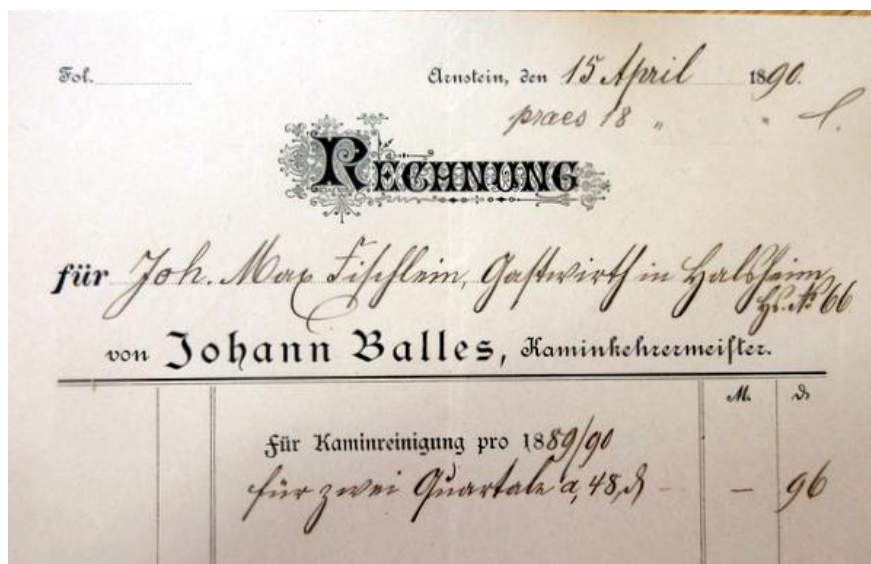 Fol.
Arnstein, den 15 April 1890.
praes 18 " "
RECHNUNG
für Joh. Max Fischlein, Gastwirth in Halsheim,
Hs. № 66
von Johann Balles, Kaminkehrermeister.
M. ₰
Für Kaminreinigung pro 1889/90
für zwei Quartale a, 48 ₰ – – 96